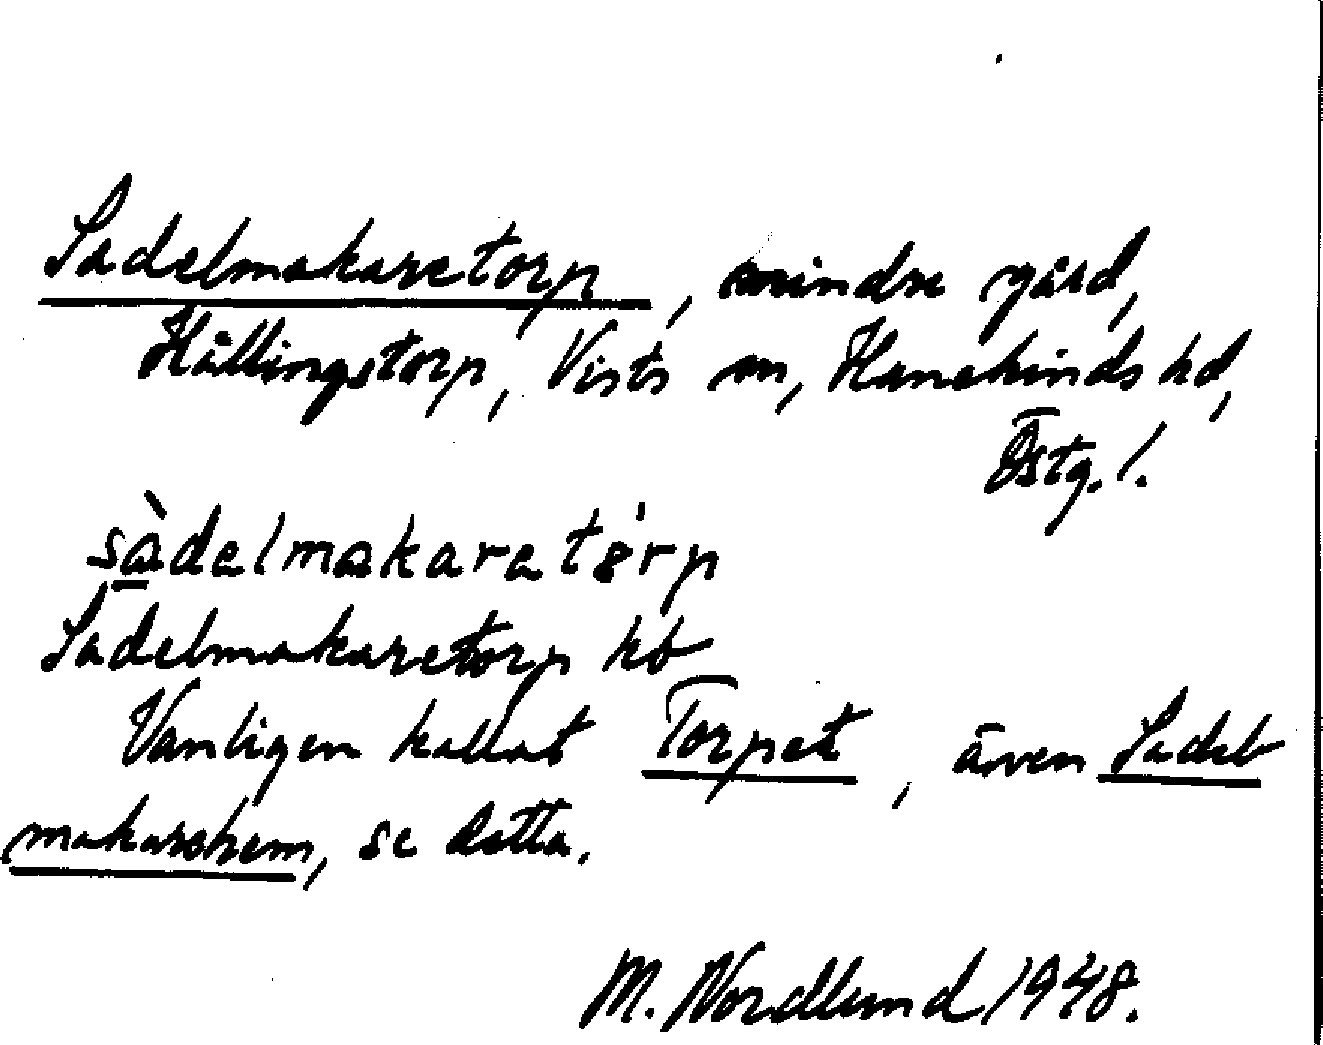 Sadelmakaretorp, mindre gård,
Hällingstorp, Vists sn, Hanekinds hd,
Östg. l.
sàdelmakaretórp
Sadelmakaretorp kb
Vanligen kallat Torpet, även Sadel-
makarehem, se detta.
M. Nordlund 1948.